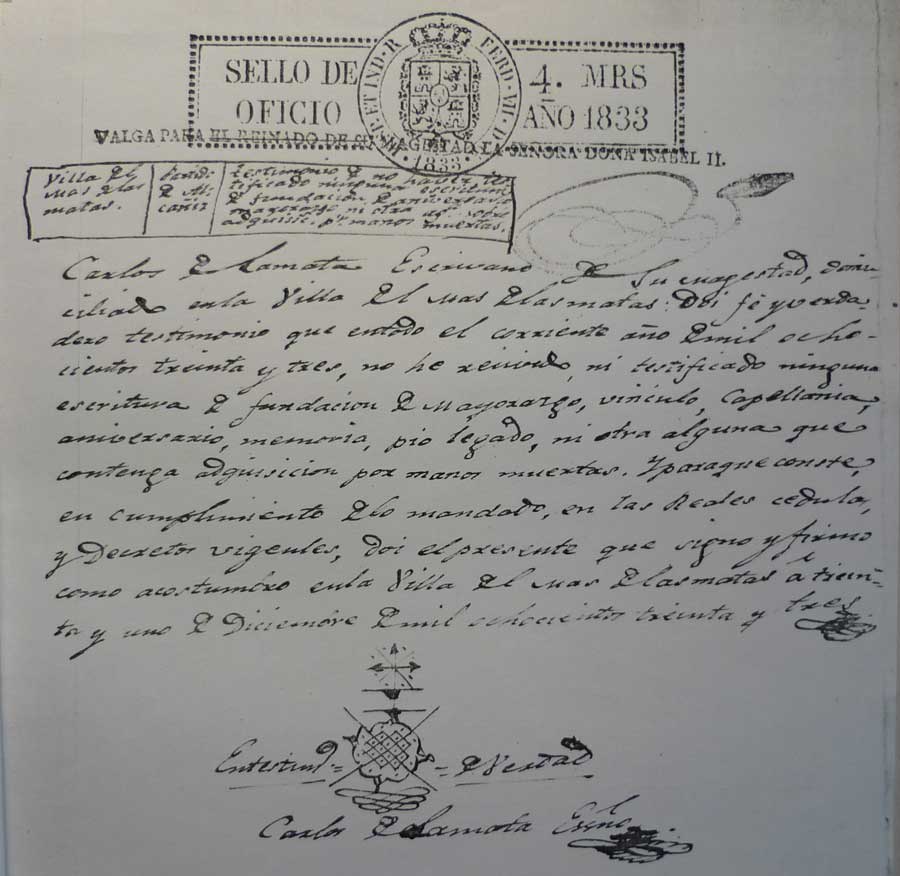 SELLO DE OFICIO
4. MRS AÑO 1833
P. ET IND. R
FERD. VII. D.
1833.
VALGA PARA EL REINADO DE SU MAGESTAD LA SEÑORA DOÑA ISABEL II.
Villa del
Mas de las
matas.
Partido
de Al-
cañiz
testimonio de no haber tes-
tificado ninguna escritura
de fundacion de aniversario
mayorazgo, ni otra sobre
adquisic. pr. manos muertas.
Carlos de Lamata Escrivano de Su Magestad, domi-
ciliado en la Villa del Mas de las matas: Doi fe y verda-
dero testimonio que entodo el corriente año de mil ocho-
cientos treinta y tres, no he recivido, ni testificado ninguna
escritura de fundacion de Mayorazgo, vinculo, Capellania,
aniversario, memoria, pio legado, ni otra alguna que
contenga adquisicion por manos muertas. Y paraque conste,
en cumplimiento de lo mandado, en las Reales cedulas,
y Decretos vigentes, doi el presente que signo y firmo
como acostumbro en la Villa del Mas de las matas á trein-
ta y uno de Diciembre de mil ochocientos treinta y tres
En testimo = de Verdad
Carlos de Lamata Essno